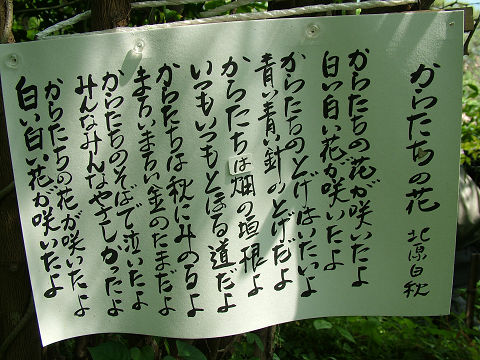 からたちの花
北原白秋
からたちの花が咲いたよ
白い白い花が咲いたよ
からたちのとげはいたいよ
青い青い針のとげだよ
からたちは畑の垣根よ
いつもいつもとほる道だよ
からたちは秋にみのるよ
まろいまろい金のたまだよ
からたちのそばで泣いたよ
みんなみんなやさしかったよ
からたちの花が咲いたよ
白い白い花が咲いたよ